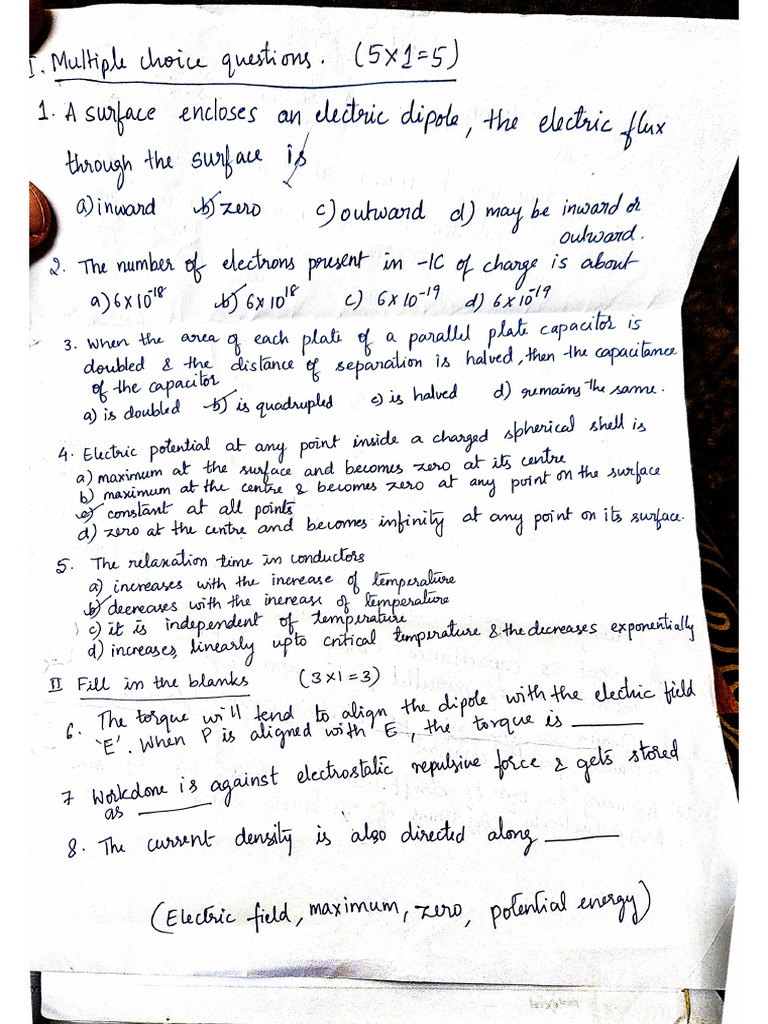 I. Multiple choice questions. (5×1=5)
1. A surface encloses an electric dipole, the electric flux
through the surface is
a) inward b) zero c) outward d) may be inward or
outward.
2. The number of electrons present in -1C of charge is about
a) 6×10⁻¹⁸ b) 6×10¹⁸ c) 6×10⁻¹⁹ d) 6×10⁻¹⁹
3. When the area of each plate of a parallel plate capacitor is
doubled & the distance of separation is halved, then the capacitance
of the capacitor
a) is doubled b) is quadrupled c) is halved d) remains the same.
4. Electric potential at any point inside a charged spherical shell is
a) maximum at the surface and becomes zero at its centre
b) maximum at the centre & becomes zero at any point on the surface
c) constant at all points
d) zero at the centre and becomes infinity at any point on its surface.
5. The relaxation time in conductors
a) increases with the increase of temperature
b) decreases with the increase of temperature
c) it is independent of temperature
d) increases linearly upto critical temperature & the decreases exponentially
II Fill in the blanks (3×1=3)
6. The torque will tend to align the dipole with the electric field
'E'. When P is aligned with E, the torque is ______
7 Workdone is against electrostatic repulsive force & gets stored
as ______
8. The current density is also directed along ______
(Electric field, maximum, zero, potential energy)